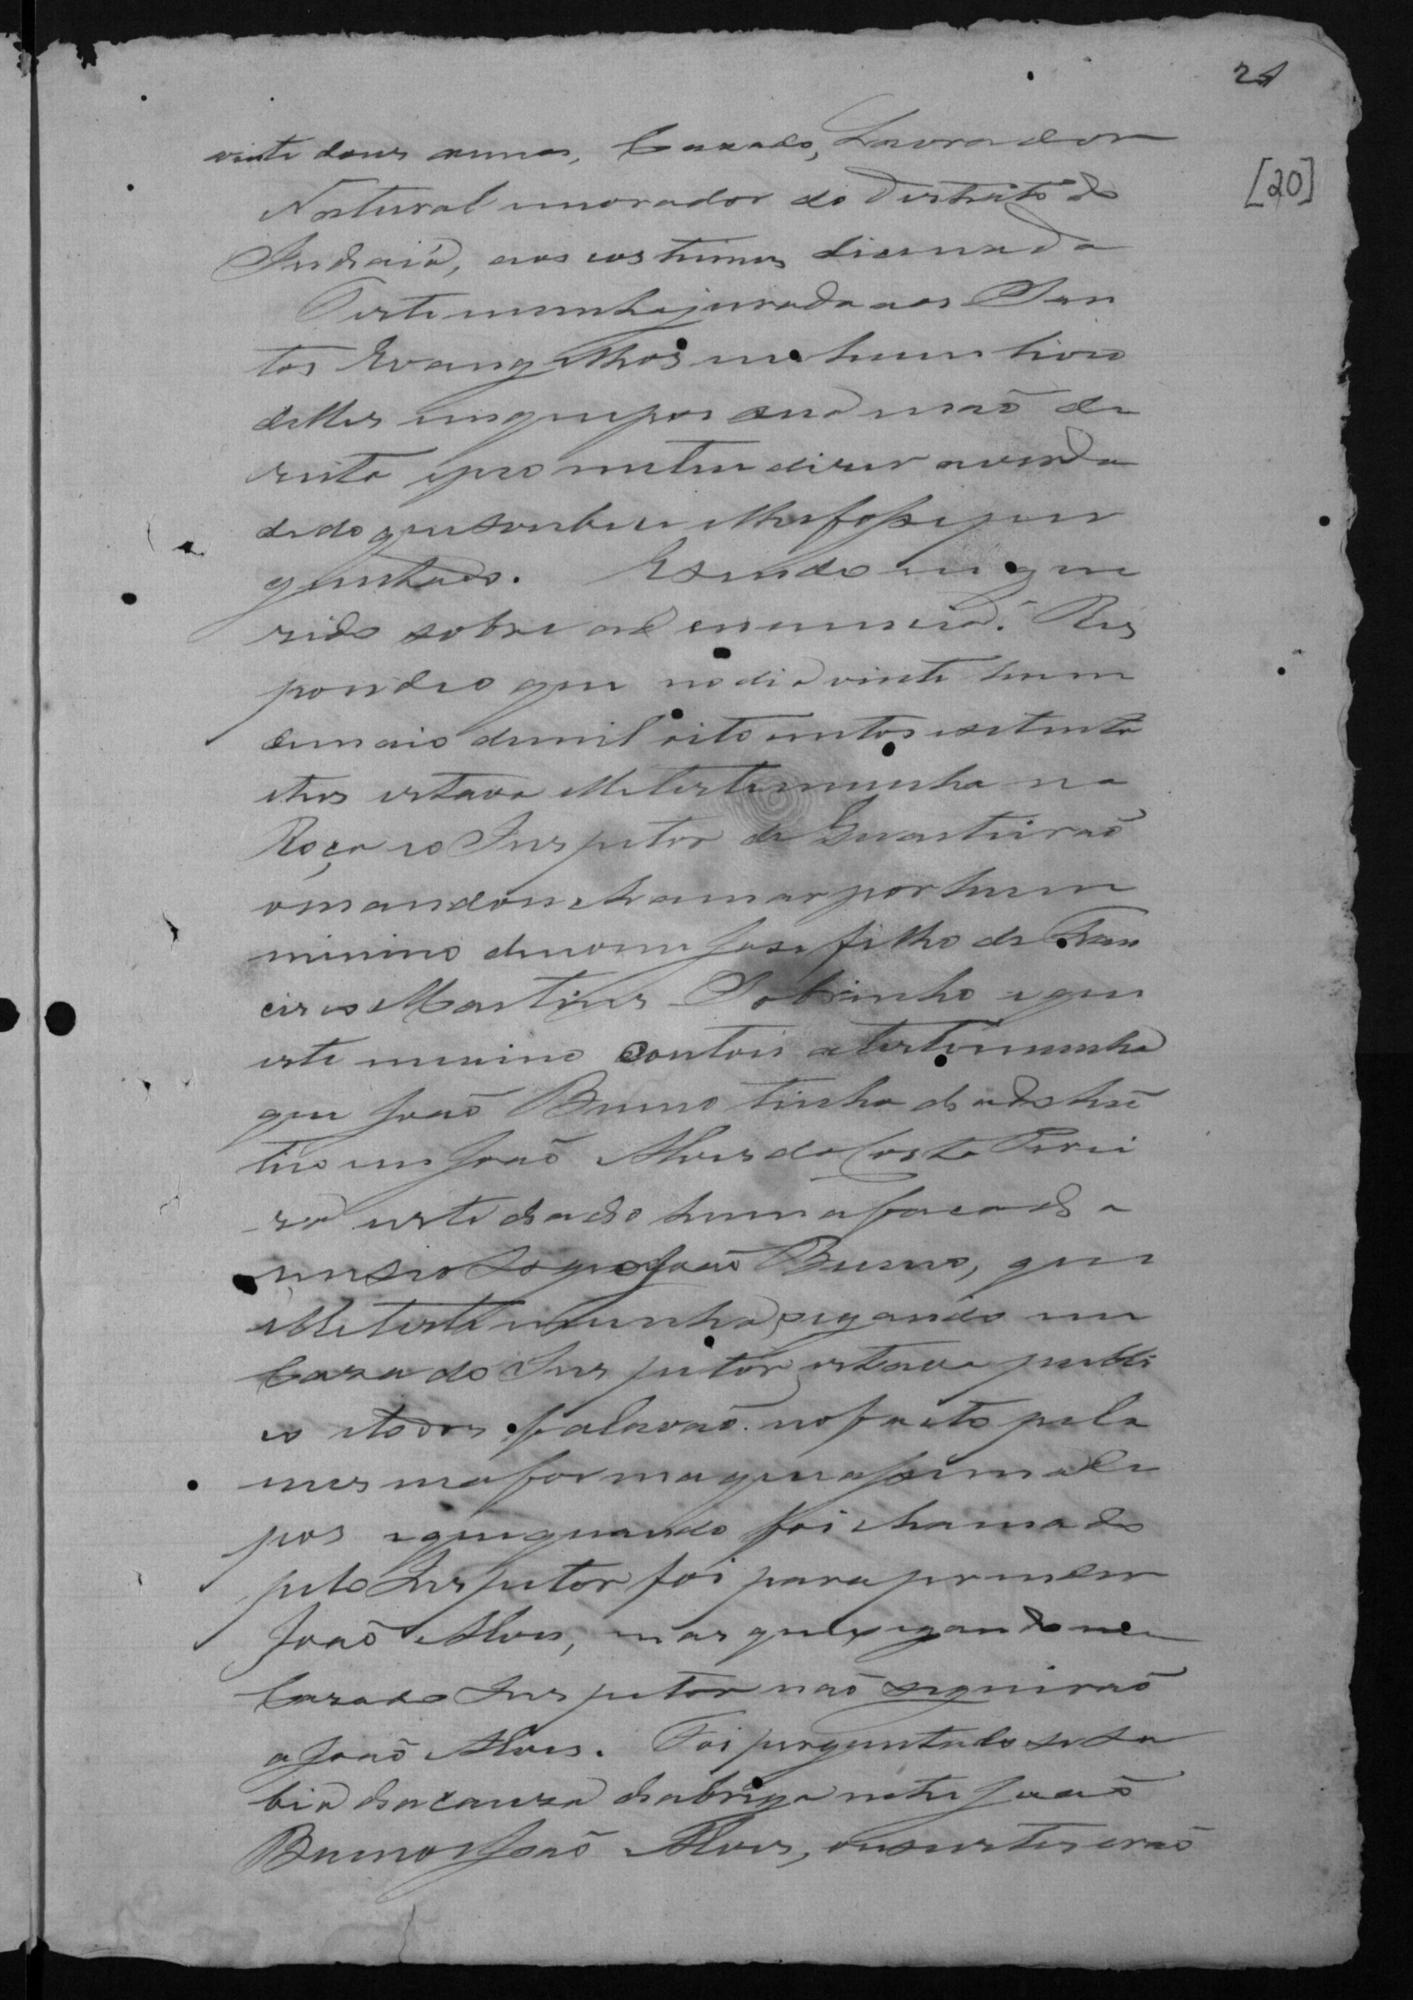 21
[20]
vinte dous annos, Cazado, Lavrador
Natural morador do Districto do
Indaiá, aos costumes dice nada
Testemunha jurada aos San
tos Evangelhos em hum livro
delles em que pos sua maõ di
reita e prometeu dizer a verda
de do que soubese e lhe fosse per
guntado. E sendo inque
rido sobre a denuncia. Res
pondeo que no dia vinte hum
de maio de mil oito centos e setenta
e tres estava elle testemunha na
Roça e o Inspetor de Quarteiraõ
o mandou chamar por hum
minino de nome Jose filho de Fran
cisco Martins Sobrinho e que
este menino contou a testemunha
que Joaõ Bueno tinha dado hũ
tiro em Joaõ Alves da Costa Perei
ra e este dado huma facada
no Joaõ Bueno, que
elle testemunha xegando em
Caza do Inspetor estava publi
co e todos falavaõ no facto pela
mesma forma que assima de
pos e que quando foi chamado
pelo Inspetor foi para prender
Joaõ Alves, mas que xegando na
Caza do Inspetor naõ seguiraõ
a Joaõ Alves. Foi perguntado se sa
bia da cauza da briga entre Joaõ
Bueno e Joaõ Alves, e se estes eraõ